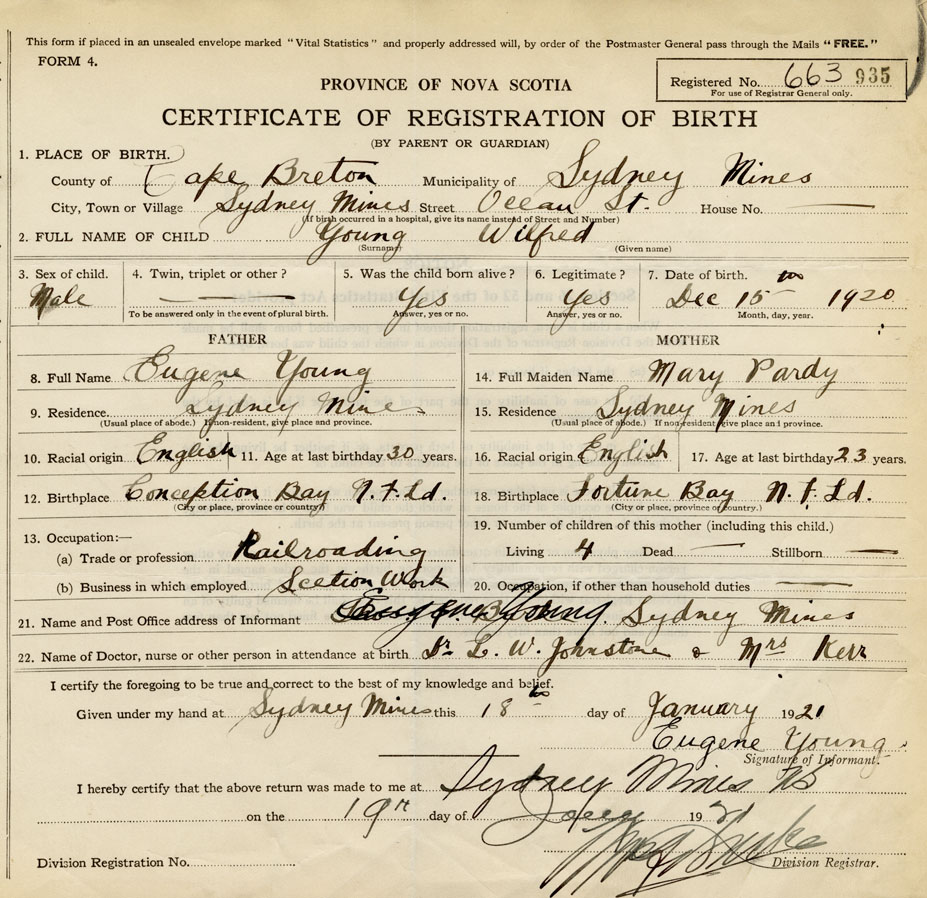 This form if placed in an unsealed envelope marked "Vital Statistics" and properly addressed will, by order of the Postmaster General pass through the Mails "FREE."
FORM 4.
Registered No. 663 935
For use of Registrar General only.
PROVINCE OF NOVA SCOTIA
CERTIFICATE OF REGISTRATION OF BIRTH
(BY PARENT OR GUARDIAN)
1. PLACE OF BIRTH.
County of Cape Breton Municipality of Sydney Mines
City, Town or Village Sydney Mines Street Ocean St. House No. —
(If birth occurred in a hospital, give its name instead of Street and Number)
2. FULL NAME OF CHILD Young Wilfred
(Surname) (Given name)
3. Sex of child. 4. Twin, triplet or other? 5. Was the child born alive? 6. Legitimate? 7. Date of birth.
Male — Yes Yes Dec 15th 1920
To be answered only in the event of plural birth. Answer, yes or no. Answer, yes or no. Month, day, year.
FATHER MOTHER
8. Full Name Eugene Young 14. Full Maiden Name Mary Pardy
9. Residence. Sydney Mines 15. Residence Sydney Mines
(Usual place of abode.) If non-resident, give place and province. (Usual place of abode.) If non-resident give place and province.
10. Racial origin English 11. Age at last birthday 30 years. 16. Racial origin English 17. Age at last birthday 23 years.
12. Birthplace Conception Bay N.F.Ld. 18. Birthplace Fortune Bay N.F.Ld.
(City or place, province or country) (City or place, province or country.)
13. Occupation:— 19. Number of children of this mother (including this child.)
(a) Trade or profession Railroading Living 4 Dead — Stillborn —
(b) Business in which employed Section Work 20. Occupation, if other than household duties —
21. Name and Post Office address of Informant Young. Sydney Mines
22. Name of Doctor, nurse or other person in attendance at birth Dr. L. W. Johnstone & Mrs Kerr
I certify the foregoing to be true and correct to the best of my knowledge and belief.
Given under my hand at Sydney Mines this 18th day of January 1921
Eugene Young
Signature of Informant.
I hereby certify that the above return was made to me at Sydney Mines
on the 19th day of 1921
Division Registration No. Division Registrar.